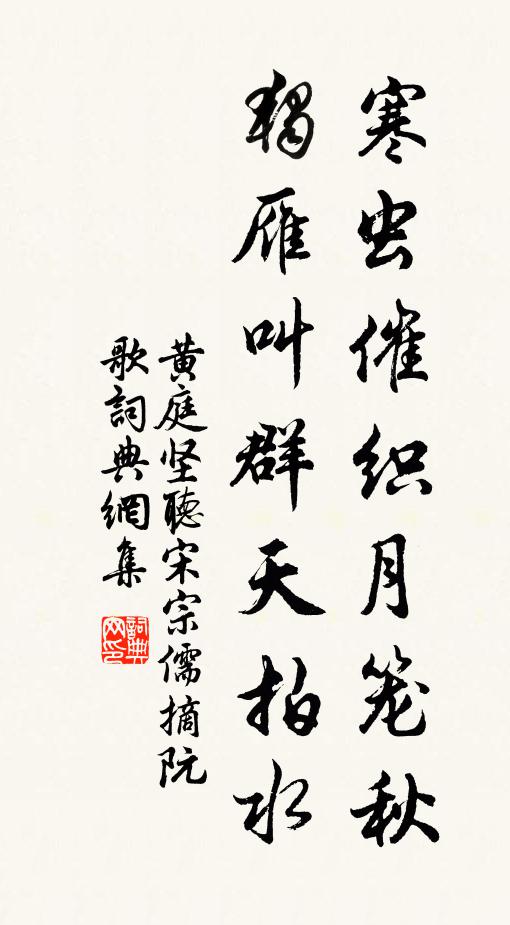 寒虫催织月笼秋
独雁叫群天拍水
黄庭坚聽宋宗儒摘阮
歌詞典網集
詞典网印